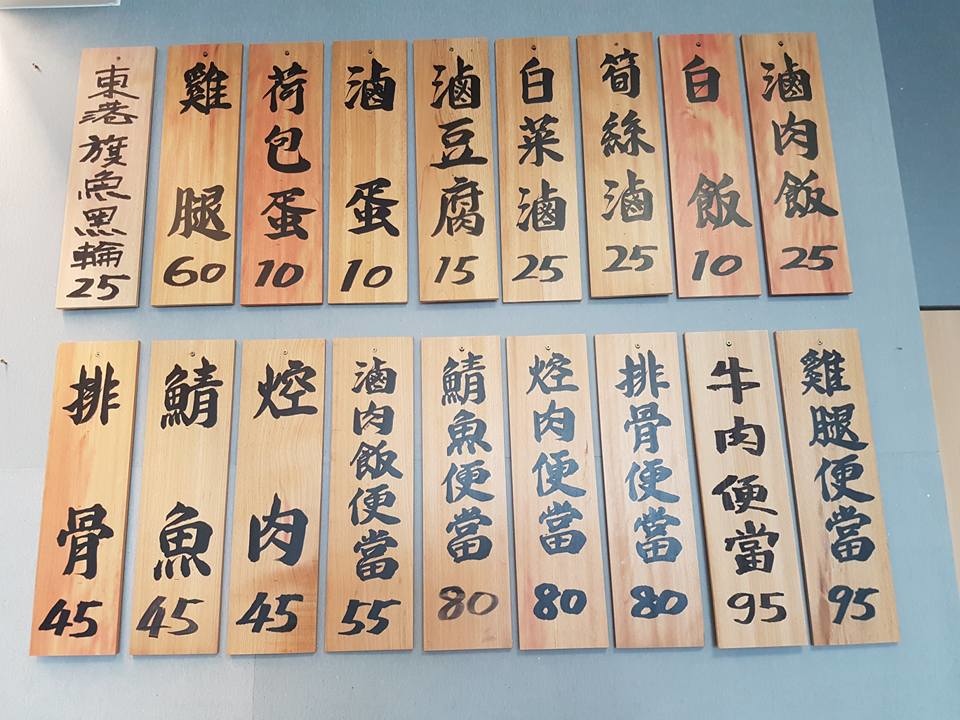 滷肉飯 25
白飯 10
筍絲滷 25
白菜滷 25
滷豆腐 15
滷蛋 10
荷包蛋 10
雞腿 60
東港旗魚黑輪 25
雞腿便當 95
牛肉便當 95
排骨便當 80
焢肉便當 80
鯖魚便當 80
滷肉飯便當 55
焢肉 45
鯖魚 45
排骨 45